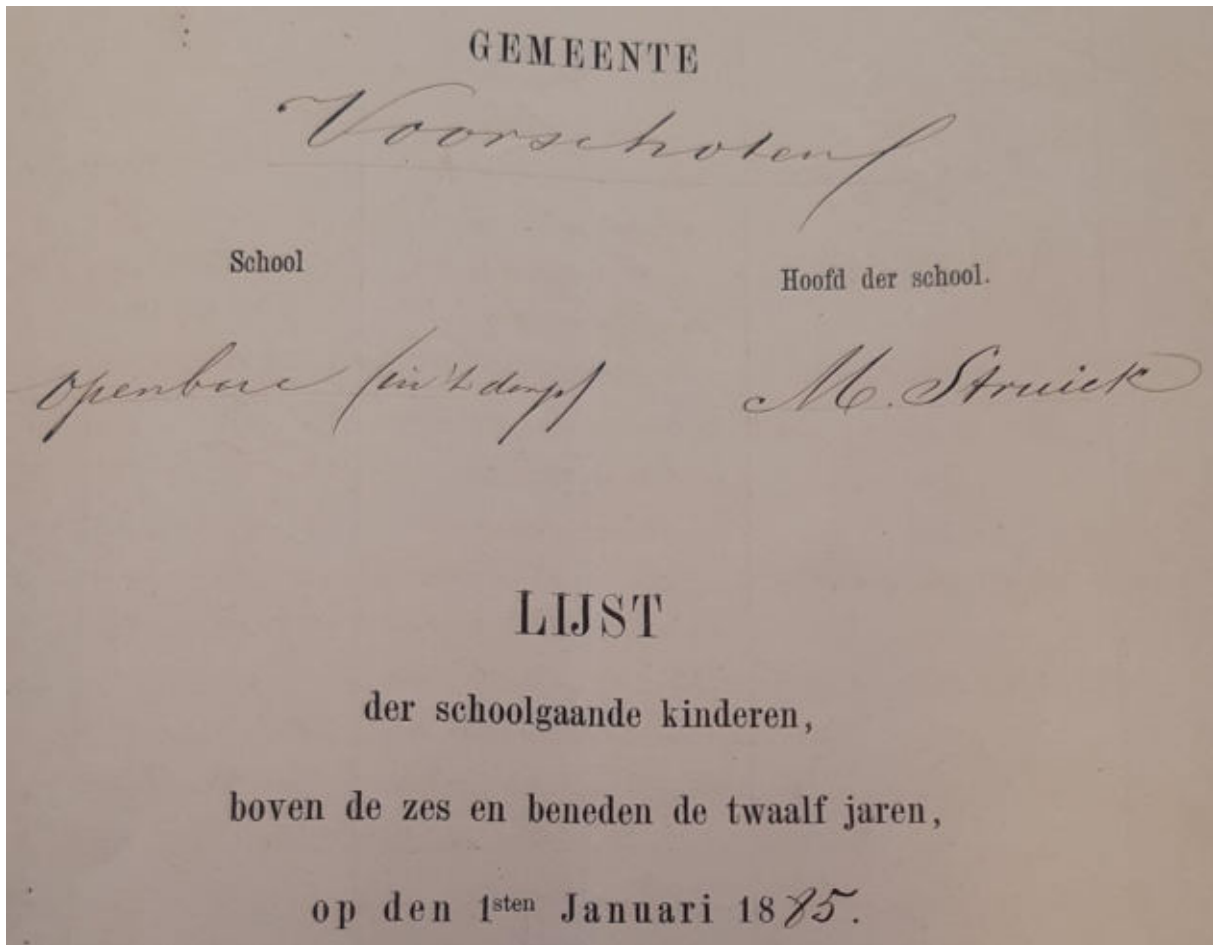 GEMEENTE
Voorschoten
School
Hoofd der school.
Openbare (in 't dorp)
M. Struick
LIJST
der schoolgaande kinderen,
boven de zes en beneden de twaalf jaren,
op den 1sten Januari 1885.